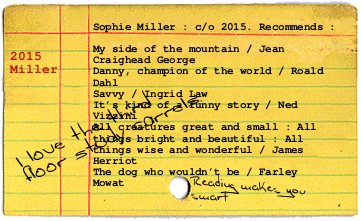 Sophie Miller : c/o 2015. Recommends :
2015
Miller
My side of the mountain / Jean
Craighead George
Danny, champion of the world / Roald
Dahl
Savvy / Ingrid Law
It's kind of a funny story / Ned
Vizzini
All creatures great and small : All
things bright and beautiful : All
things wise and wonderful / James
Herriot
The dog who wouldn't be / Farley
Mowat
I love the third
floor study carrels
Reading makes you
smart